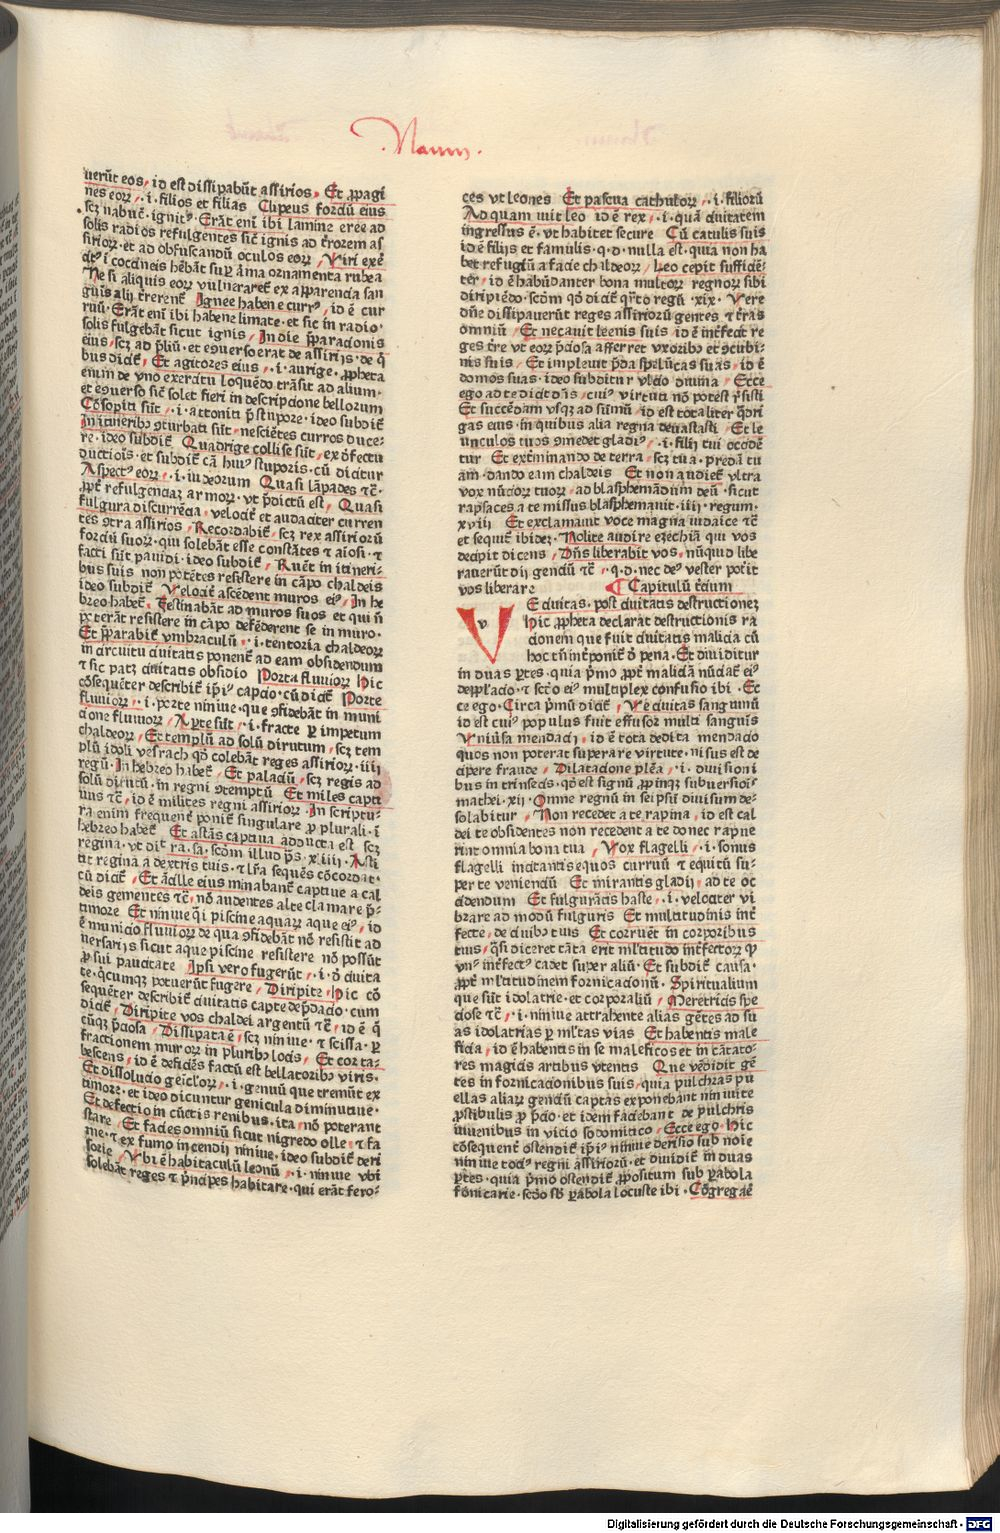 Naum
uerūt eos, id est dissipabūt assirios. Et ꝓpagi
nes eoꝝ, .i. filios et filias Clipeus fortiū eius
scꝫ nabuc̄. ignitꝰ. Erāt enī ibi lamine eree ad
solis radios refulgentes sic̄ ignis ad t̄rorem as
sirioꝝ. et ad obfuscandū oculos eoꝝ, Viri exer̄
citꝰ ī coccineis hēbāt suꝑ arma ornamenta rubea
Ne si aliquis eoꝝ vulneraret̄ ex apparencia san
guīs alij t̄rerent̄ Ignee habene currꝰ, id ē cur
ruū. Erāt enī ibi habene limate. et sic in radio.
solis fulgebāt sicut ignis, In die p̄paracionis
eius, scꝫ ad p̄liū. et ꝯuerso erat de assirijs. de q̄
bus dicit̄, Et agitores eius, .i. aurige, ꝓpheta
enim de vno exercitu loquēdo trāsit ad alium.
et ꝯuerso sic̄ solet fieri in descripcione bellorum
Cōsopiti sūt, .i. attoniti p̄ stupore. ideo subdit̄
In itineribꝰ ꝯturbati sūt. nesciētes curros duce-
re. ideo subdit̄ Quadrige collise sūt, ex ō̄fectu
ductiōis. et subdit̄ cā huiꝰ stuporis. cū dicitur
Aspectꝰ eoꝝ, .i. iudeorum Quasi lāpades ⁊c̄.
ꝓpt̄ refulgenciaꝫ armoꝝ. vt p̄dictū est, Quasi
fulgura discurrēcia, velocit̄ et audaciter curren
tes ꝯtra assirios, Recordabit̄, scꝫ rex assirioꝝ
fortiū suoꝝ. qui solebāt esse constātes ⁊ aiosi. ⁊
facti sūt pauidi. ideo subdit̄, Ruēt in itineri-
bus suis non potētes resistere in cāpo chaldeis
ideo subdit̄ Velocit̄ ascēdent muros eiꝰ, In he
breo habet̄. Festinabāt ad muros suos et qui ñ
poterāt resistere in cāpo defēderent se in muro.
Et p̄parabit̄ vmbraculū, .i. tentoria chaldeoꝝ
in circuitu ciuitatis ponent̄ ad eam obsidendum
⁊ sic patꝫ ciuitatis obsidio Porta fluuioꝝ hic
cōsequēter describit̄ ip̄iꝰ capcio. cū dicit̄ Porte
fluuioꝝ, .i. porte niniue. que ꝯfidebāt in muni
cione fluuioꝝ, Aꝑte sūt, .i. fracte ꝑ impetum
chaldeoꝝ, Et templū ad solū dirutum, scꝫ tem
plū idoli vesrach qd̄ colebāt reges assirioꝝ. iiij
regū. In hebreo habet̄, Et palaciū, scꝫ regis ad
solū dirutū. in regni ꝯtemptū Et miles capti
uus ⁊c̄, id ē milites regni assirioꝝ. In scriptu-
ra enim frequent̄ ponit̄ singulare ꝓ plurali. i
hebreo habet̄ Et astās captiua adducta est scꝫ
regina. vt dit ra. sa. scdm̄ illud p̄s. xliiij. Asti
tit regina a dextris tuis. ⁊ lr̄a sequēs cōcordat.
cū dicit̄, Et ācille eius minabant̄ captiue a cal
deis gementes ⁊c̄. nō audentes alte clamare p̄-
timore Et niniue q̄i piscine aquaꝝ aque eiꝰ, id
ē municio fluuioꝝ de qua ꝯfidebāt nō resistit ad
uersarijs sicut aque piscine resistere nō possūt
ꝓ sui paucitate Ipsi vero fugerūt, .i. ō ciuita
te. q̄cumqꝫ potuerūt fugere, Diripite, hic cō
sequēter describit̄ ciuitatis capte dep̄dacio. cum
dicit̄, Diripite vos chaldei argentū ⁊c̄, id ē q̄
cūqꝫ p̄ciosa, Dissipata ē, scꝫ niniue. ⁊ scissa. ꝑ
fractionem muroꝝ in pluribꝰ locis, Et cor ta-
bescens, id ē deficiēs factū est bellatoribꝰ viris.
Et dissolucio geic̄loꝝ, .i. genuū que tremūt ex
timore. et ideo dicuntur genicula diminutiue.
Et defectio in cūctis renibus. ita. nō poterant
stare, Et facies omniū sicut nigredo olle. ⁊ fa
me. ⁊ ex fumo incendij niniue. ideo subdit̄ deri
sorie, Vbi ē habitaculū leonū, .i. niniue vbi
solebāt reges ⁊ p̄ncipes habitare. qui erāt fero-
ces vt leones Et pascua catuloꝝ, .i. filiorū
Ad quam iuit leo id ē rex, .i. quā ciuitatem
ingressus ē. vt habitet secure Cū catulis suis
id ē filijs et famulis. q. d. nulla est. quia non ha
bet refugiū a facie chaldeoꝝ, Leo cepit sufficiē-
ter, id ē habūdanter bona multoꝝ regnoꝝ sibi
diripiēdo. scdm̄ qd̄ dicit̄ q̄rto regū. xix. Vere
dn̄e dissipauerūt reges assiriorū gentes ⁊ t̄ras
omniū, Et necauit leenis suis id ē int̄fecit re
ges t̄re vt eoꝝ p̄ciosa afferret vxoribꝰ et ꝯcubi-
nis suis, Et impleuit p̄da spelūcas suas, id ē
domos suas. ideo subditur vlcio diuina, Ecce
ego ad te dicit dn̄s, cuiꝰ virtuti nō potest r̄sisti
Et succēdam vsqꝫ ad sūmū, id est totaliter q̄dri
gas eius. in quibus alia regna deuastasti, Et le
unculos tuos ꝯmedet gladiꝰ, .i. filij tui occidē
tur Et ext̄minando de terra, scꝫ tua. predā tu
am. dando eam chaldeis Et non audiet̄ vltra
vox nūcioꝝ tuoꝝ, ad blasphemādum deū. sicut
rapsaces a te missus blasphemauit. iiij. regum.
xviij Et exclamauit voce magna iudaice ⁊c̄
et sequit̄ ibidez. Nolite audire ezechiā qui vos
decipit dicens, Dn̄s liberabit vos, nūquid libe
rauerūt dij genciū ⁊c̄, .q. d. nec deꝰ vester pot̄it
vos liberare Capitulū t̄cium
Ve ciuitas. post ciuitatis destructionez
hic ꝓpheta declarat destructionis ra
cionem que fuit ciuitatis malicia cū
hoc tn̄ int̄ponit̄ ō pena. Et diuiditur
in duas ꝑtes. quia p̄mo ꝓpt̄ maliciā nūciat̄ eiꝰ
dep̄dacio. ⁊ scd̄o eiꝰ multiplex confusio ibi. Ec
ce ego. Circa p̄mū dicit̄, Ve ciuitas sanguinū
id est cuiꝰ populus fuit effusor multi sanguīs
Vniūsa mendacij, id ē tota dedita mendacio
quos non poterat superare virtute. nisus est de
cipere fraude, Dilaceracione plēa, .i. diuisioni
bus intrinsecis. qd̄ est signū ꝓpinque subuersiōis
mathei. xij. Omne regnū in seipsū diuisum de-
solabitur, Non recedet a te rapina, id est cal
dei te obsidentes non recedent a te donec rapue
rint omnia bona tua, Vox flagelli, .i. sonus
flagelli incitantis equos curruū ⁊ equitū su-
per te venienciū Et mirantis gladij, ad te oc
cidendum Et fulgurātis haste, .i. velociter vi
brate ad modū fulguris Et multitudinis int̄
fecte, de ciuibꝰ tuis Et corruēt in corporibus
tuis, q̄si diceret tāta erit ml̄titudo int̄fectoꝝ ꝙ
vnꝰ int̄fectꝰ cadet super aliū. Et subdit̄ causa.
ꝓpt̄ ml̄titudinem fornicacionū. Spiritualium
que sūt idolatrie. et corporaliū, Meretricis spe
ciose ⁊c̄, .i. niniue attrahente alias gētes ad su
as idolatrias ꝑ ml̄tas vias Et habentis male
ficia, id ē habentis in se maleficos et incātato-
res magicis artibus vtentis Que vēdidit gē
tes in fornicacionibus suis, quia pulchras pu
ellas aliaꝝ genciū captas exponebant niniuite
ꝓstibulis ꝓ p̄cio. et idem faciebant de pulchris
iuuenibus in vicio sodomitico, Ecce ego. hic
cōsequent̄ ostendit̄ ip̄iꝰ niniue derisio sub noīe
niniue tociꝰ regni assiriorū. et diuidit̄ in duas
ꝑtes. quia p̄mo ostendit̄ ꝓpositum sub ꝑabola
fornicarie. scd̄o sb̄ ꝑabola locuste ibi. Cōgregar̄
Digitalisierung gefördert durch die Deutsche Forschungsgemeinschaft - DFG